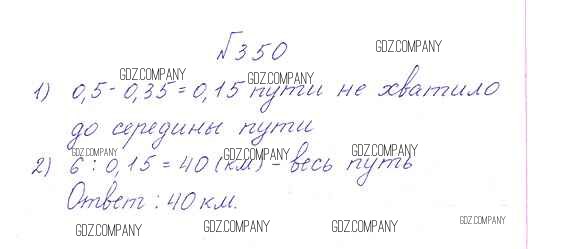 №350 GDZ.COMPANY
GDZ.COMPANY GDZ.COMPANY
1) 0,5 - 0,35 = 0,15 пути не хватило
до середины пути
GDZ.COMPANY GDZ.COMPANY GDZ.COMPANY
2) 6 : 0,15 = 40 (км) - весь путь
Ответ : 40 км.
GDZ.COMPANY GDZ.COMPANY GDZ.COMPANY GDZ.COMPANY